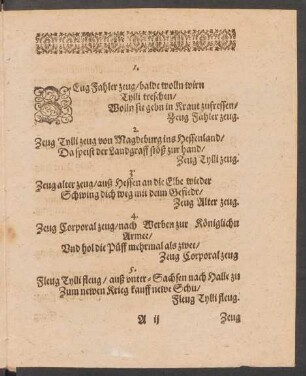 1.
ZEug Fahler zeug/ balde wolln wirn
Tylli treschen/
Wolln sie gebn in Kraut zufressen/
Zeug Fahler zeug.
2.
Zeug Tylli zeug von Magdeburg ins Hessenland/
Da speist der Landgraff stöß zur hand/
Zeug Tylli zeug.
3.
Zeug alter zeug/ auß Hessen an die Elbe wieder
Schwing dich weg mit deim Gefiedr/
Zeug Alter zeug.
4.
Zeug Corporal zeug/ nach Werben zur Königlichn
Armee/
Vnd hol die Püff mehrmal als zwee/
Zeug Corporal zeug
5.
Fleug Tylli fleug/ auß vnter-Sachsen nach Halle zu
Zum newen Krieg kauff newe Schu/
Fleug Tylli fleug.
A ij
Zeug